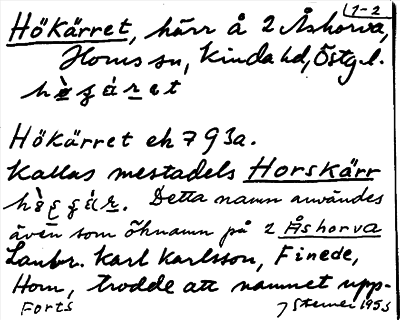 1-2
Hökärret, kärr å 2 Åshorva,
Horns sn, Kinda hd, Östg. l.
Hökärret ek 7 9 3a.
Kallas mestadels Horskärr
Detta namn användes
även som öknamn på 2 Åshorva
Lantbr. Karl Karlsson, Finede,
Horn, trodde att namnet upp-
Forts 1955